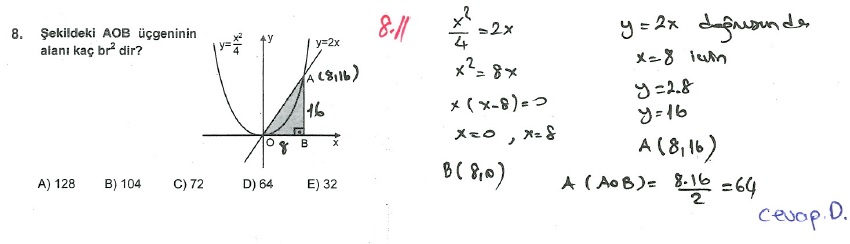 8. Şekildeki AOB üçgeninin
alanı kaç br² dir?
y=x²/4
y
y=2x
A (8,16)
16
O 8 B x
A) 128 B) 104 C) 72 D) 64 E) 32
8.//
x²/4 = 2x
x² = 8x
x (x-8) = 0
x=0 , x=8
B(8,0)
y = 2x doğrusunda
x=8 için
y=2.8
y=16
A(8,16)
A (AOB) = 8.16/2 = 64
cevap D.